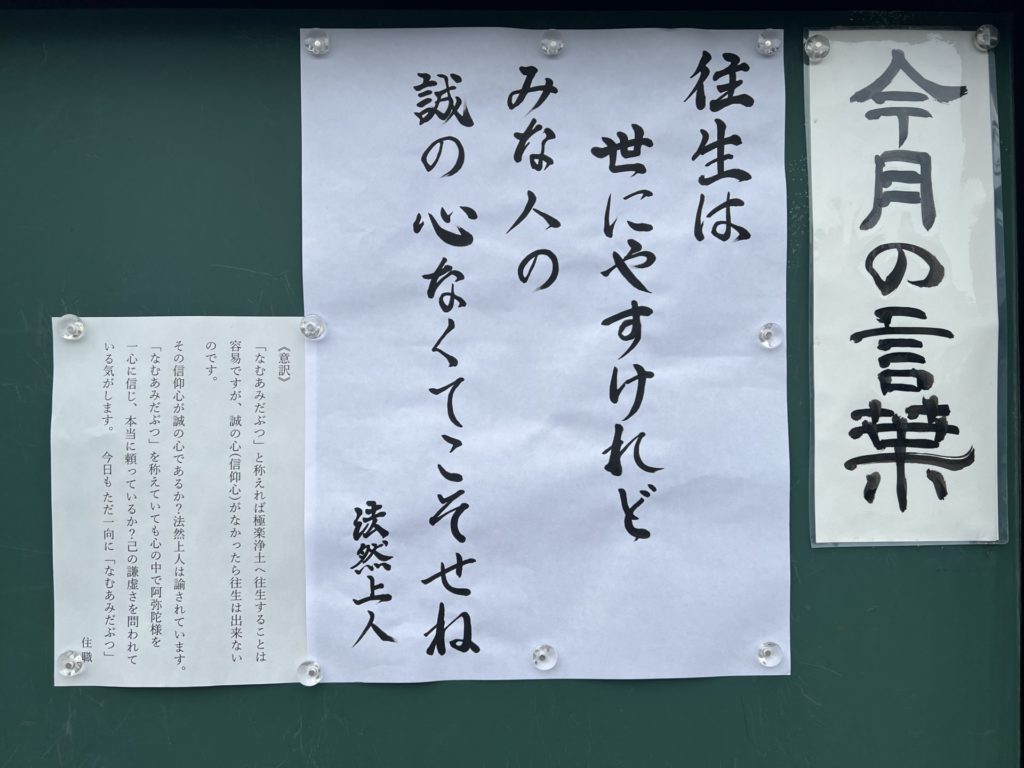 今月の言葉
往生は
世にやすけれど
みな人の
誠の心なくてこそせね
法然上人
《意訳》
「なむあみだぶつ」と称えれば極楽浄土へ往生することは
容易ですが、誠の心(信仰心)がなかったら往生は出来ない
のです。
その信仰心が誠の心であるか?法然上人は諭されています。
「なむあみだぶつ」を称えていても心の中で阿弥陀様を
一心に信じ、本当に頼っているか?己の謙虚さを問われて
いる気がします。 今日もただ一向に「なむあみだぶつ」
住職